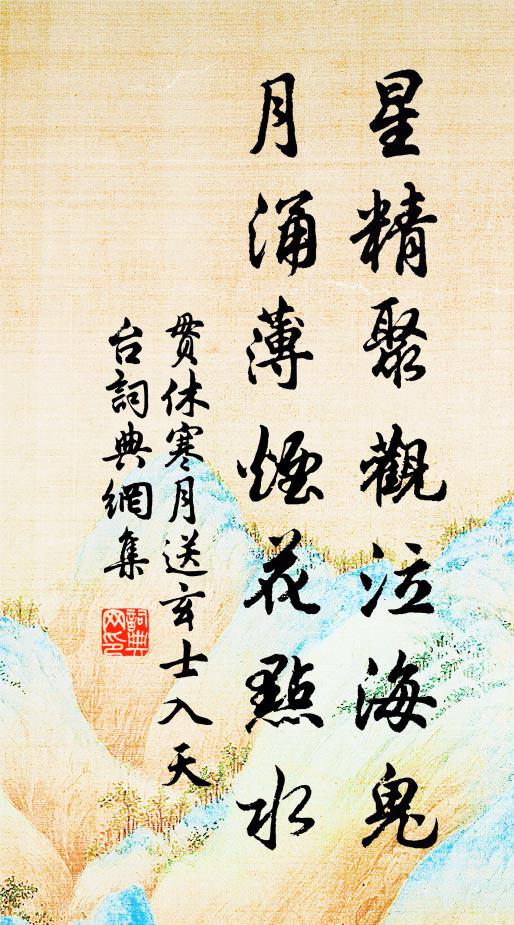 星精聚觀泣海鬼
月涌薄煙花點水
貫休寒月送玄士入天
台詞典網集
詞典网印